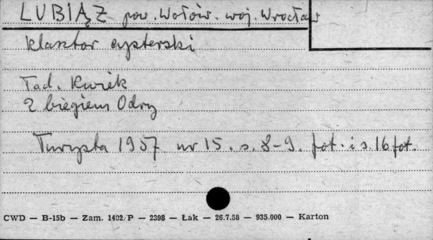 LUBIĄŻ pow. Wołów. woj. Wrocław
klasztor cysterski
Tad. Kwiek
Z biegiem Odry
Turysta 1957 nr 15. s. 8-9. fot. i s. 16 fot.
CWD — B-15b — Zam. 1402/P — 2398 — Łak — 26.7.58 — 935.000 — Karton